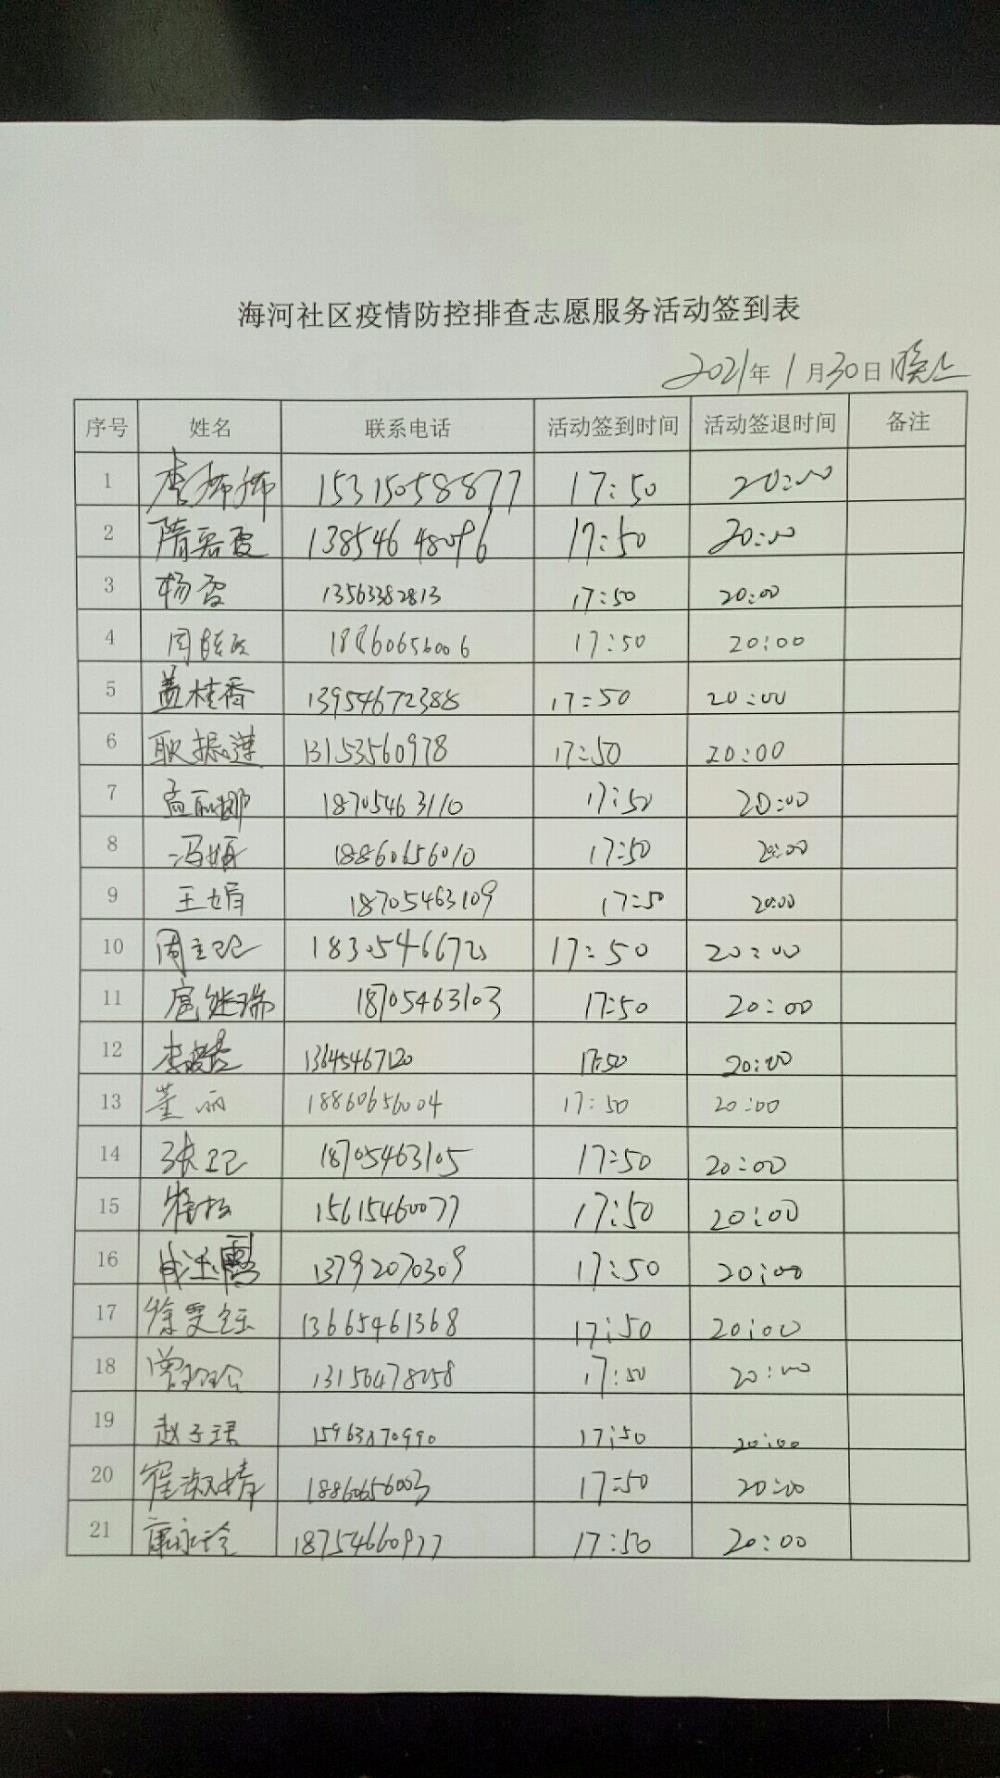 海河社区疫情防控排查志愿服务活动签到表
2021年1月30日晚上
序号 姓名 联系电话 活动签到时间 活动签退时间 备注
1 李娜娜 15315058877 17:50 20:00
2 隋君霞 13854648096 17:50 20:00
3 杨雪 13563382813 17:50 20:00
4 18860656006 17:50 20:00
5 盖桂香 13954672388 17:50 20:00
6 耿振莲 13153560978 17:50 20:00
7 孟丽娜 18705463110 17:50 20:00
8 冯娟 18860656010 17:50 20:00
9 王娟 18705463109 17:50 20:00
10 17:50 20:00
11 扈继瑞 18705463103 17:50 20:00
12 13645467120 17:50 20:00
13 董丽 18860656004 17:50 20:00
14 张卫 18705463105 17:50 20:00
15 崔松 15615460077 17:50 20:00
16 成玉霞 13792070309 17:50 20:00
17 徐雯钰 13665461368 17:50 20:00
18 17:50 20:00
19 赵子珺 15963870990 17:50 20:00
20 崔淑婧 18860656003 17:50 20:00
21 康永玲 18754660977 17:50 20:00